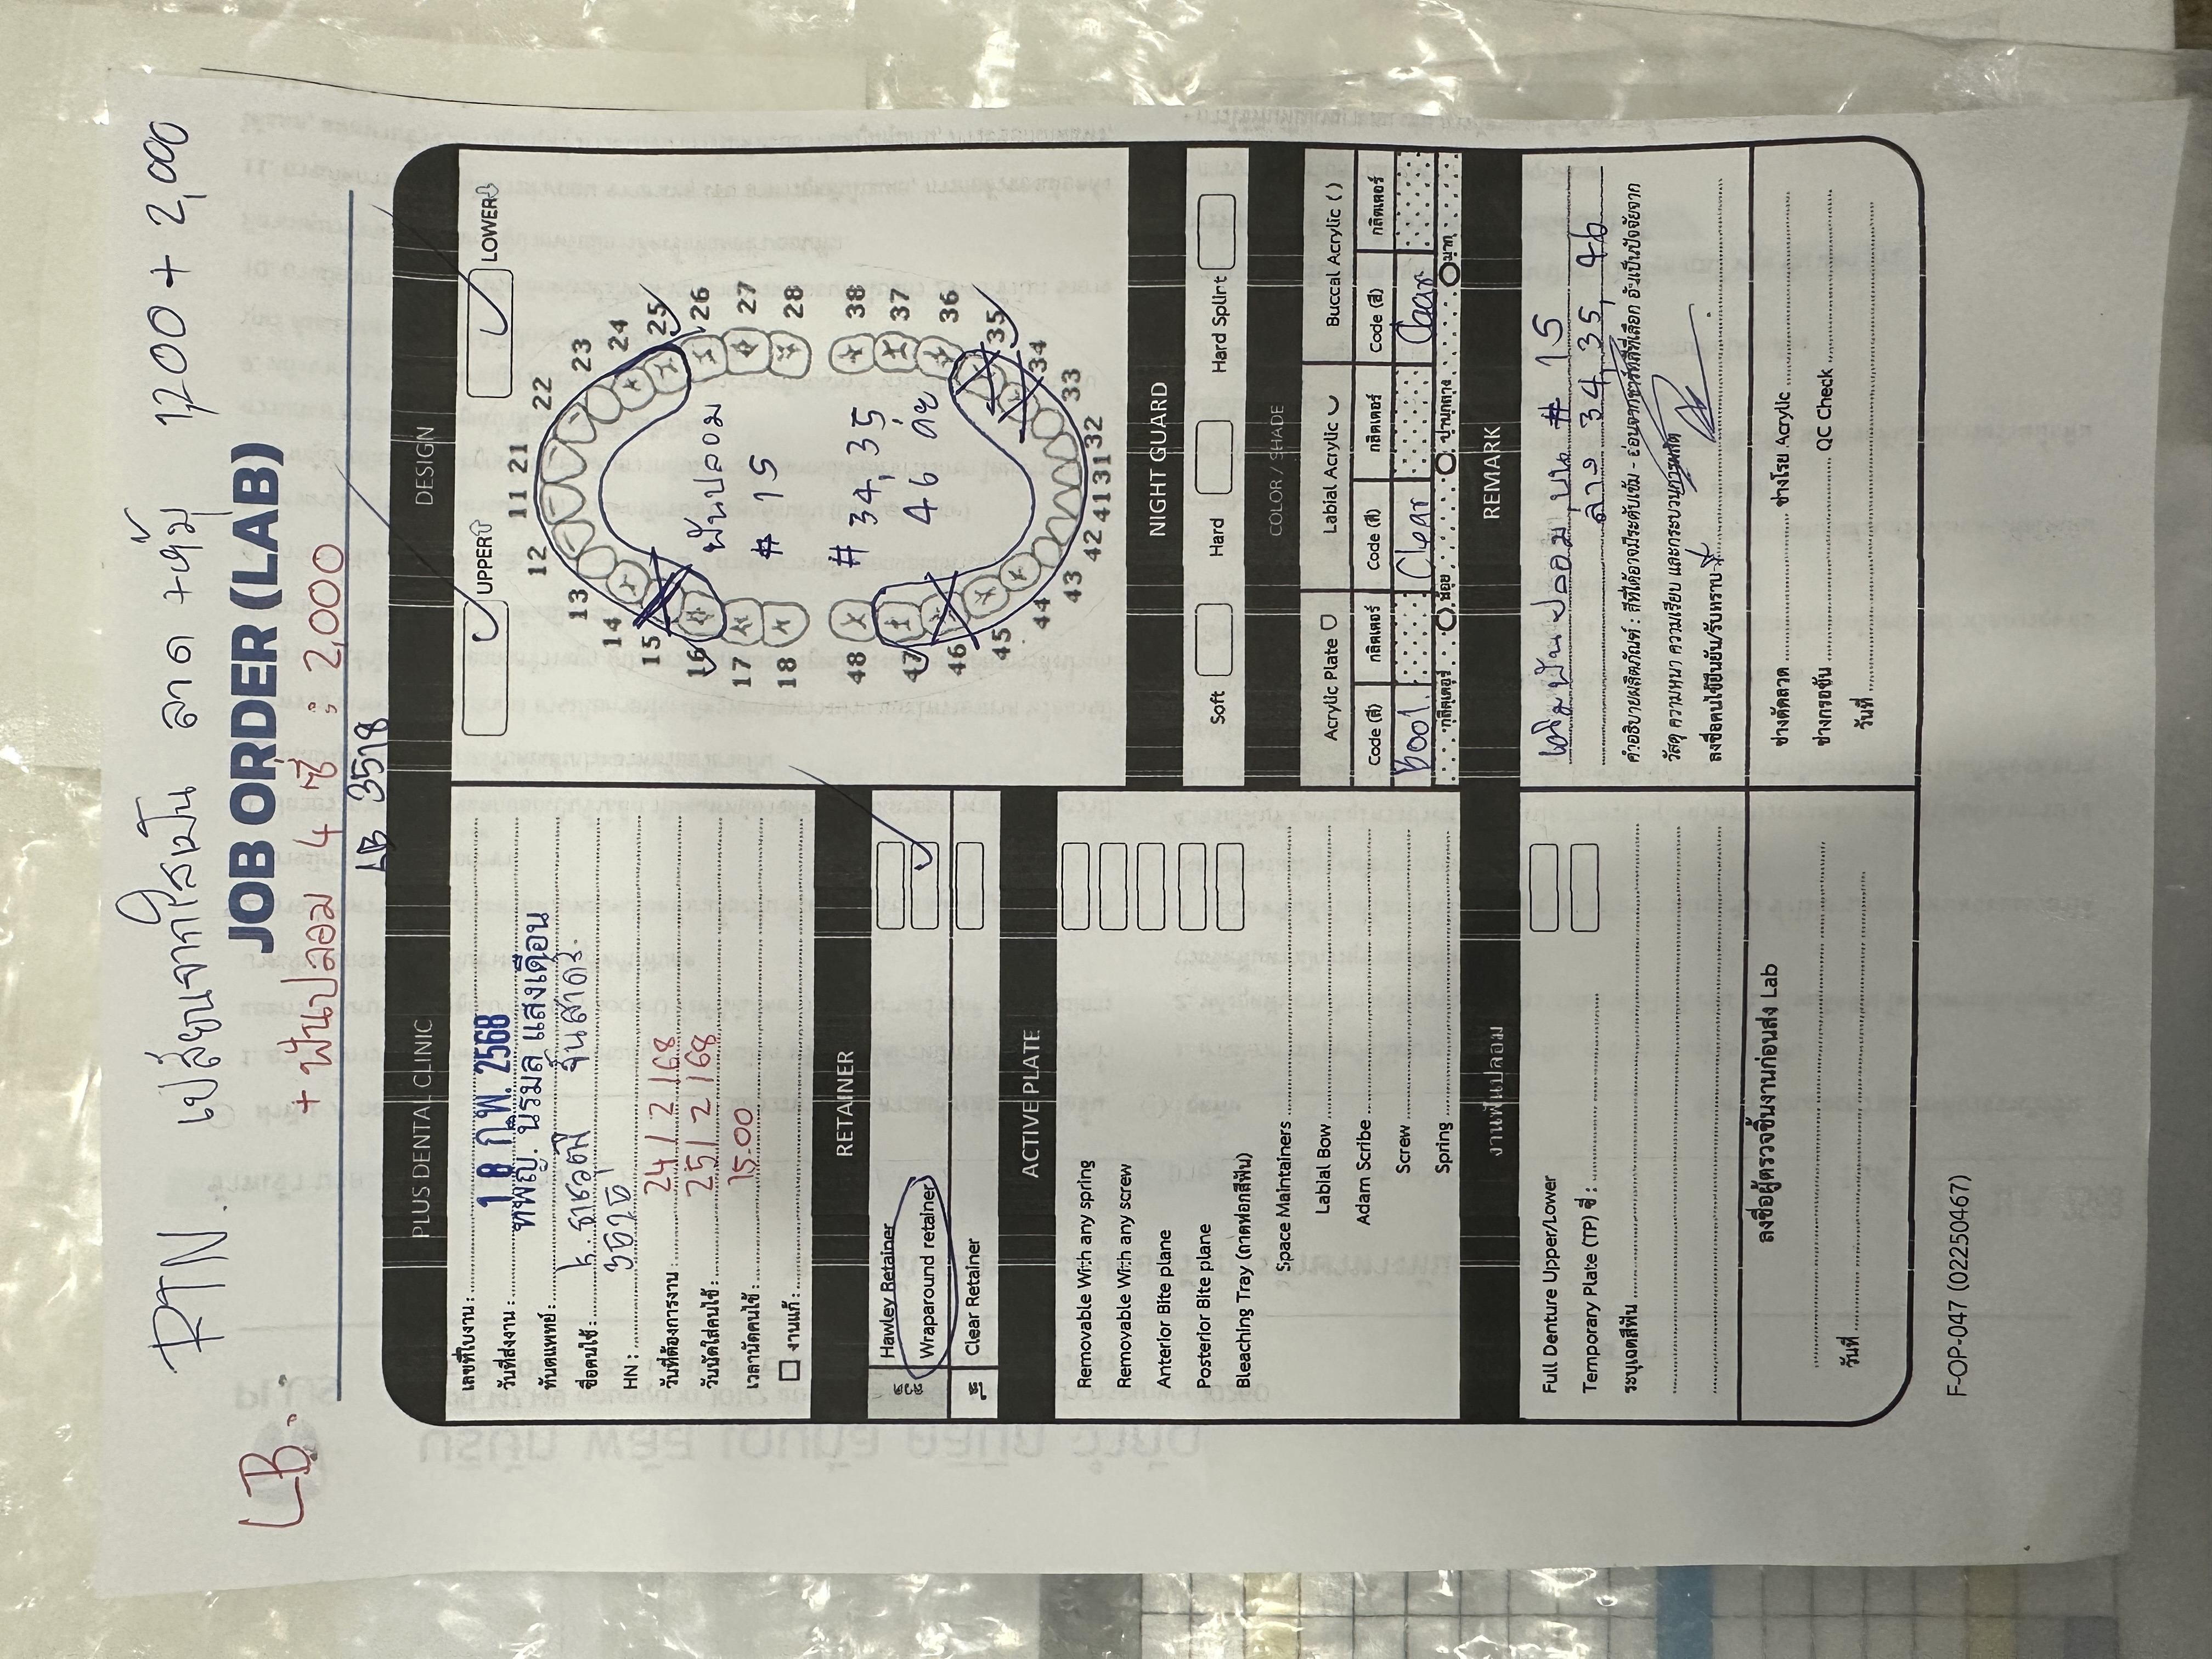 RTN. เปลี่ยนจากใสเป็น ลวด +หุ้ม 1,200 + 2,000
JOB ORDER (LAB)
LB.
+ ฟันปลอม 4 ซี่ : 2,000
LB 3518
PLUS DENTAL CLINIC
เลขที่ใบงาน :
วันที่ส่งงาน : 18 ก.พ. 2568
ทันตแพทย์ : ทพญ. นิรมล แสงเดือน
ชื่อคนไข้ :
HN : 3525
วันที่ต้องการงาน : 24/2/68
วันนัดใส่คนไข้ : 25/2/68
เวลานัดคนไข้ : 15.00
งานแก้ :
RETAINER
ลวด
Hawley Retainer
Wraparound retainer
ใส
Clear Retainer
ACTIVE PLATE
Removable With any spring
Removable With any screw
Anterior Bite plane
Posterior Bite plane
Bleaching Tray (ถาดฟอกสีฟัน)
Space Maintainers
Labial Bow
Adam Scribe
Screw
Spring
งานฟันปลอม
Full Denture Upper/Lower
Temporary Plate (TP) ซี่ :
ระบุเฉดสีฟัน
ลงชื่อผู้ตรวจชิ้นงานก่อนส่ง Lab
วันที่
DESIGN
UPPER
LOWER
11 21
12 22
13 23
14 24
15 25
16 26
17 27
18 28
ฟันปลอม
# 15
48 38
47 37
46 36
45 35
44 34
43 33
42 41 31 32
# 34, 35
46 ด้วย
NIGHT GUARD
Soft Hard Hard Splint
COLOR / SHADE
Acrylic Plate Labial Acrylic Buccal Acrylic ( )
Code (สี) กลิตเตอร์ Code (สี) กลิตเตอร์ Code (สี) กลิตเตอร์
B001. Clear Clear
กลิตเตอร์ น้อย ปานกลาง มาก
REMARK
เสริมฟันปลอม บน # 15
ล่าง 34, 35, 46
คำอธิบายผลิตภัณฑ์ : สีที่ได้อาจมีระดับเข้ม - อ่อนจากชาร์ทสีที่เลือก อันเป็นปัจจัยจาก
วัสดุ ความหนา ความเรียบ และกระบวนการผลิต
ลงชื่อคนไข้ยืนยัน/รับทราบ
ช่างดัดลวด ช่างโรย Acrylic
ช่างกรอขัน QC Check
วันที่
F-OP-047 (02250467)